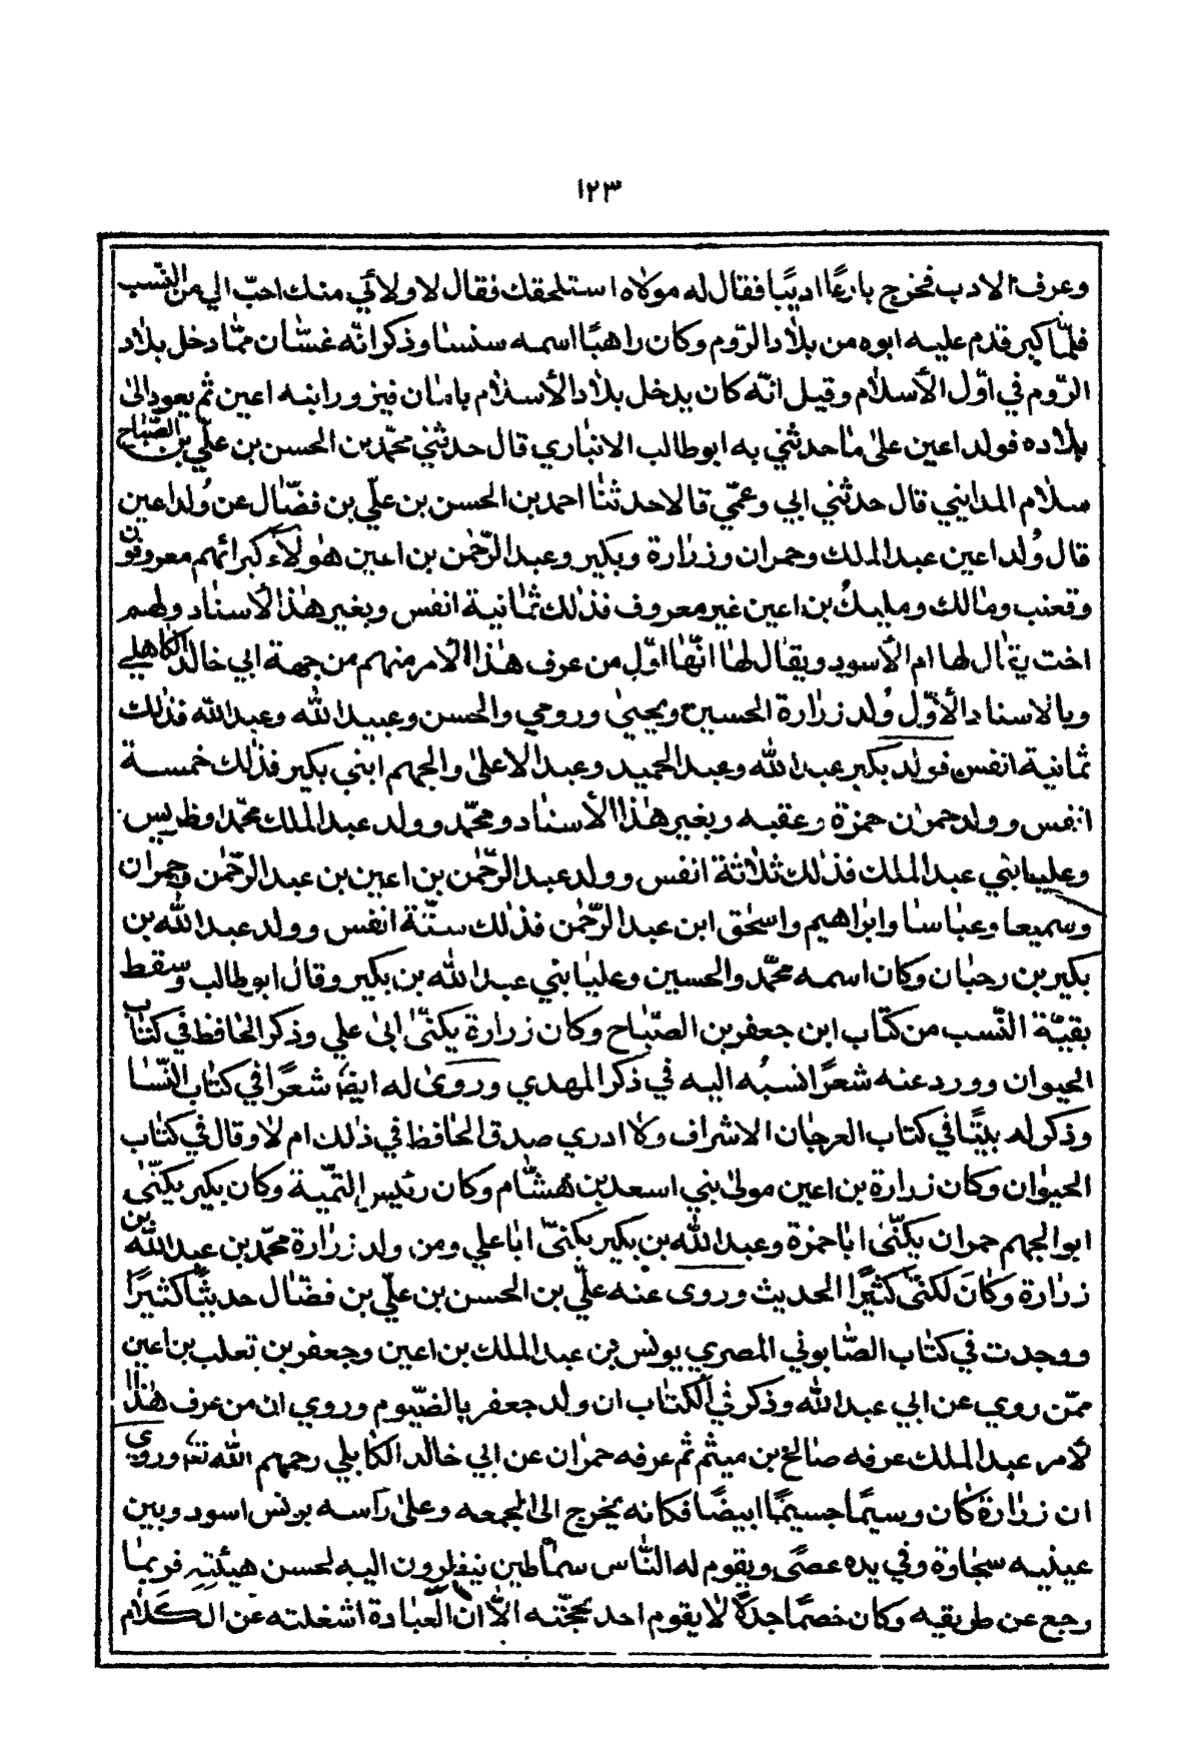 ١٢٣
وعرف الادب فخرج بارعًا اديبًا فقال له مولاه استلحقك فقال لا ولائي منك احبّ الي من النّسب
فلمّا كبر قدم عليه ابوه من بلاد الرّوم وكان راهبًا اسمه سنسا وذكر انّه غسّان ممّا دخل بلاد
الرّوم في اوّل الأسلام وقيل انّه كان يدخل بلاد الأسلام بامان فيزور ابنه اعين ثم يعود الى
بلاده فولد اعين على ما حدثني به ابو طالب الانباري قال حدثني محمّد بن الحسن بن عليّ بن الصّباح
سلام المدايني قال حدثني ابي وعمّي قالا حدثنا احمد بن الحسن بن عليّ بن فضّال عن وُلد اعين
قال وُلد اعين عبد الملك وحمران وزرارة وبكير وعبد الرّحمن بن اعين هؤلاء كبرائهم معروفون
وقعنب ومالك ومليك بن اعين غير معروف فذلك ثمانية انفس وبغير هذا الأسناد ولهم
اخت يقال لها ام الأسود ويقال لها انّها اوّل من عرف هذا الأمر منهم من جهة ابي خالد الكاهلي
وبالاسناد الأوّل وُلد زرارة الحسين ويحيى ورومي والحسن وعبيد الله وعبد الله فذلك
ثمانية انفس فولد بكير عبد الله وعبد الحميد وعبد الاعلى والجهم ابني بكير فذلك خمسة
انفس وولد حمران حمزة وعقبه وبغير هذا الأسناد ومحمّد وولد عبد الملك محمّدا وظريس
وعليا بني عبد الملك فذلك ثلاثة انفس وولد عبد الرّحمن بن اعين بن عبد الرّحمن وحمران
وسميعا وعباسا وابراهيم واسحق ابن عبد الرّحمن فذلك ستّة انفس وولد عبد الله بن
بكير بن رحبان وكان اسمه محمّد والحسين وعليا بني عبد الله بن بكير وقال ابو طالب وسقط
بقيّة النّسب من كتاب ابن جعفر بن الصّباح وكان زرارة يكنّى ابى علي وذكر الحافظ في كتاب
الحيوان وورد عنه شعرًا نسبُه اليه في ذكر المهدي وروى له ايضا شعرًا في كتاب النّسا
وذكر له بيتًا في كتاب العرجان الاشراف ولا ادري صدق الحافظ في ذلك ام لا وقال في كتاب
الحيوان وكان زرارة بن اعين مولى بني اسعد بن هشام وكان رئيس التمّية وكان بكير يكنّى
ابو الجهم حمران يكنّى ابا حمزة وعبد الله بن بكير يكنّى ابا علي ومن ولد زرارة محمّد بن عبد الله بن
زرارة وكان لكنى كثيرًا الحديث وروى عنه عليّ بن الحسن بن عليّ بن فضّال حديثًا كثيرًا
ووجدت في كتاب الصّابوني المصري يونس بن عبد الملك بن اعين وجعفر بن تعلب بن اعين
ممّن روي عن ابي عبد الله وذكر في الكتاب ان ولد جعفر بالضّيوم وروي ان من عرف هذا
لأمر عبد الملك عرفه صالح بن ميثم ثم عرفه حمران عن ابي خالد الكابلي رحمهم الله تعا وروي
ان زرارة كان وسيمًا جسيمًا ابيضًا فكانه يخرج الى الجمعه وعلى رأسه برنس اسود وبين
عينيه سجاوة وفي يده عصًى ويقوم له النّاس سماطين ينظرون اليه لحسن هيئته فربما
رجع عن طريقيه وكان خصمًا جدلًا لا يقوم احد بحجّته الاّ ان العبادة اشغلته عن الكلام